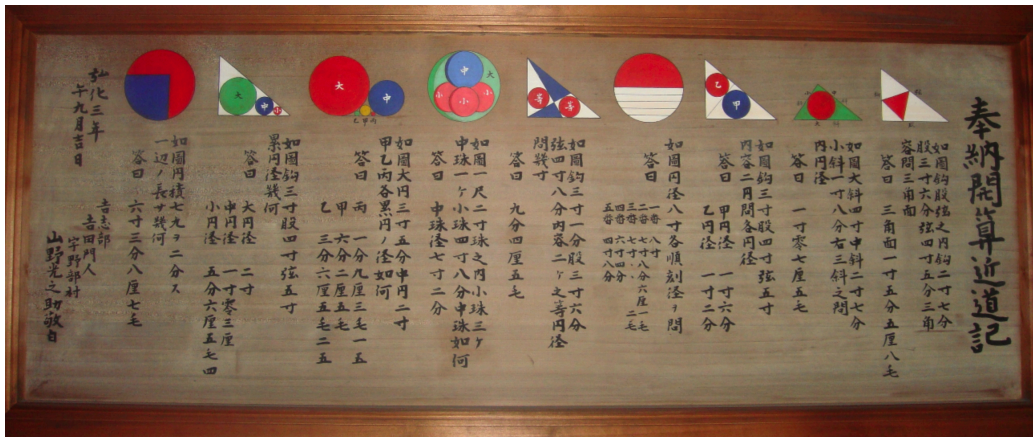 奉納開算近道記
如圖鈎股弦之内鈎二寸七分
股三寸六分弦四寸五分三角
容問三角面
答曰 三角面一寸五分五厘八毛
如圖大斜四寸中斜二寸七分
小斜一寸八分右三斜之間
内円円径
答曰 一寸零七厘五毛
如圖鈎三寸股四寸弦五寸
内容二円問各円径
答曰 甲円径 一寸六分
乙円径 一寸二分
如圖円径八寸各順刻径ヲ問
答曰
一番 八寸
二番 七寸八分六厘一毛
三番 七寸 二毛
四番 六寸四分
五番 四寸八分
如圖鈎三寸一分股三寸六分
弦四寸八分内容二ヶ之等円径
問幾寸
答曰 九分四厘五毛
如圖一尺二寸球之内小球三ヶ
中球一ヶ小球四寸八分中球如何
答曰 中球径七寸二分
如圖大円三寸五分中円二寸
甲乙丙各累円ノ径如何
答曰 丙 一分九厘三毛一五
甲 六分二厘五毛
乙 三分六厘五毛二五
如圖鈎三寸股四寸弦五寸
累円径幾何
答曰 大円径 二寸
中円径 一寸零三厘
小円径 五分六厘五毛四
如圖円積七九ヲ二分ス
一辺ノ長サ幾何
答曰 六寸三分八厘七毛
弘化三年
午九月吉日
吉志部
吉田門人
字野部村
山野光之助敬白
大
中
小
大
中
中
大
小
小
等
等
乙
甲